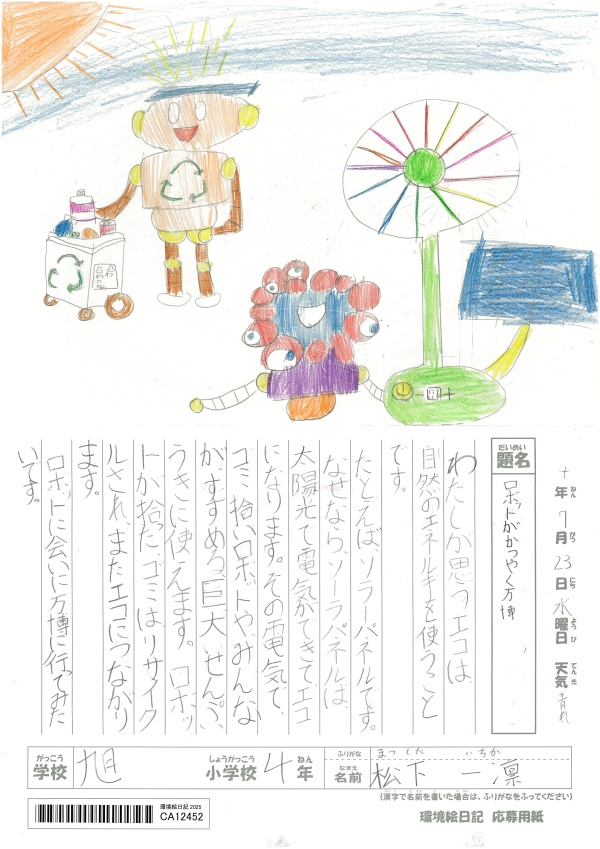 十年7月23日水曜日 天気 晴れ
ねん がつ にち ようび てんき
題名 ロボットがかつやく万博
だいめい
わたしが思うエコは、
自然のエネルギーを使うこと
です。
たとえばソラーパネルです。
なぜなら、ソーラーパネルは、
太陽光で電気ができてエコ
になります。その電気で、
ゴミ拾いロボットや、みんな
がすずめる巨大せんぷう
うきに使えます。ロボッ
トが拾った、ゴミはリサイク
ルされ、またエコにつながり
ます。
ロボットに会いに万博に行ってみた
いです。
がっこう しょうがっこう ねん
学校 旭 小学校 4年
ふりがな まつした いちか
なまえ
名前 松下 一凛
(漢字で名前を書いた場合は、ふりがなをふってください)
環境絵日記 2025
CA12452
環境絵日記 応募用紙